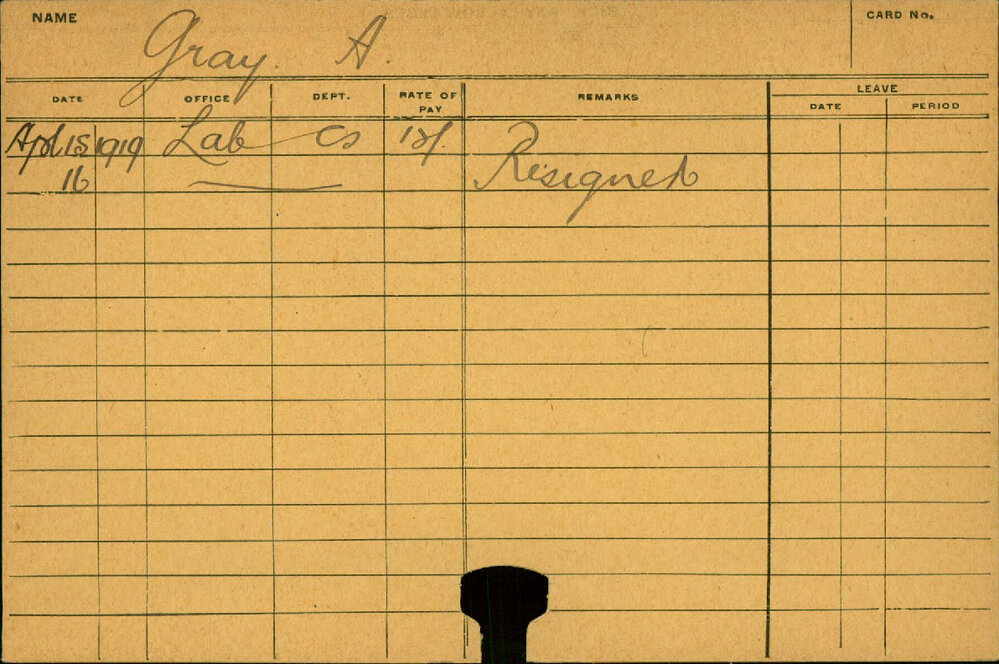 NAME Gray. A. CARD No.
DATE OFFICE DEPT. RATE OF PAY REMARKS LEAVE
DATE PERIOD
Apl 15 1919 Lab Cs 12/.
16 Resigned